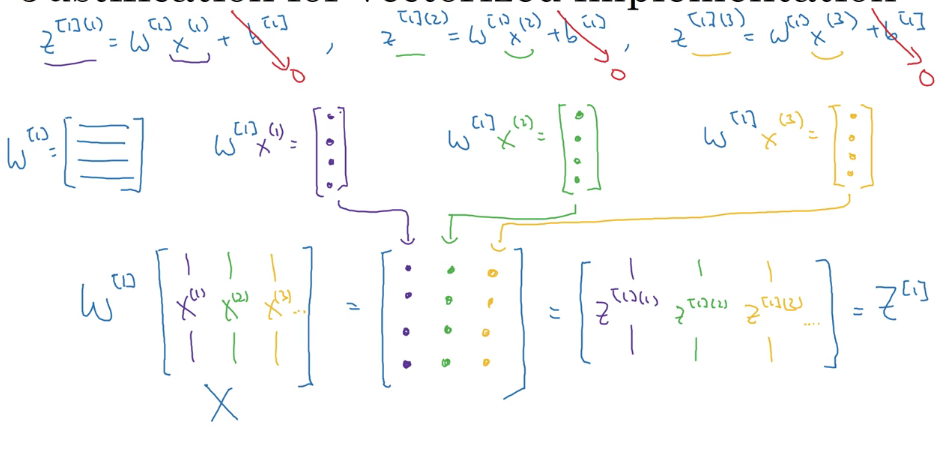 Justification for vectorized implementation
z^[1](1) = W^[1] x^(1) + b^[1] , z^[1](2) = W^[1] x^(2) + b^[1] , z^[1](3) = W^[1] x^(3) + b^[1]
0 0 0
W^[1] = [ ] W^[1] x^(1) = [ ] W^[1] x^(2) = [ ] W^[1] x^(3) = [ ]
W^[1] [ x^(1) x^(2) x^(3) ... ] = [ ] = [ z^[1](1) z^[1](2) z^[1](2) .... ] = Z^[1]
X